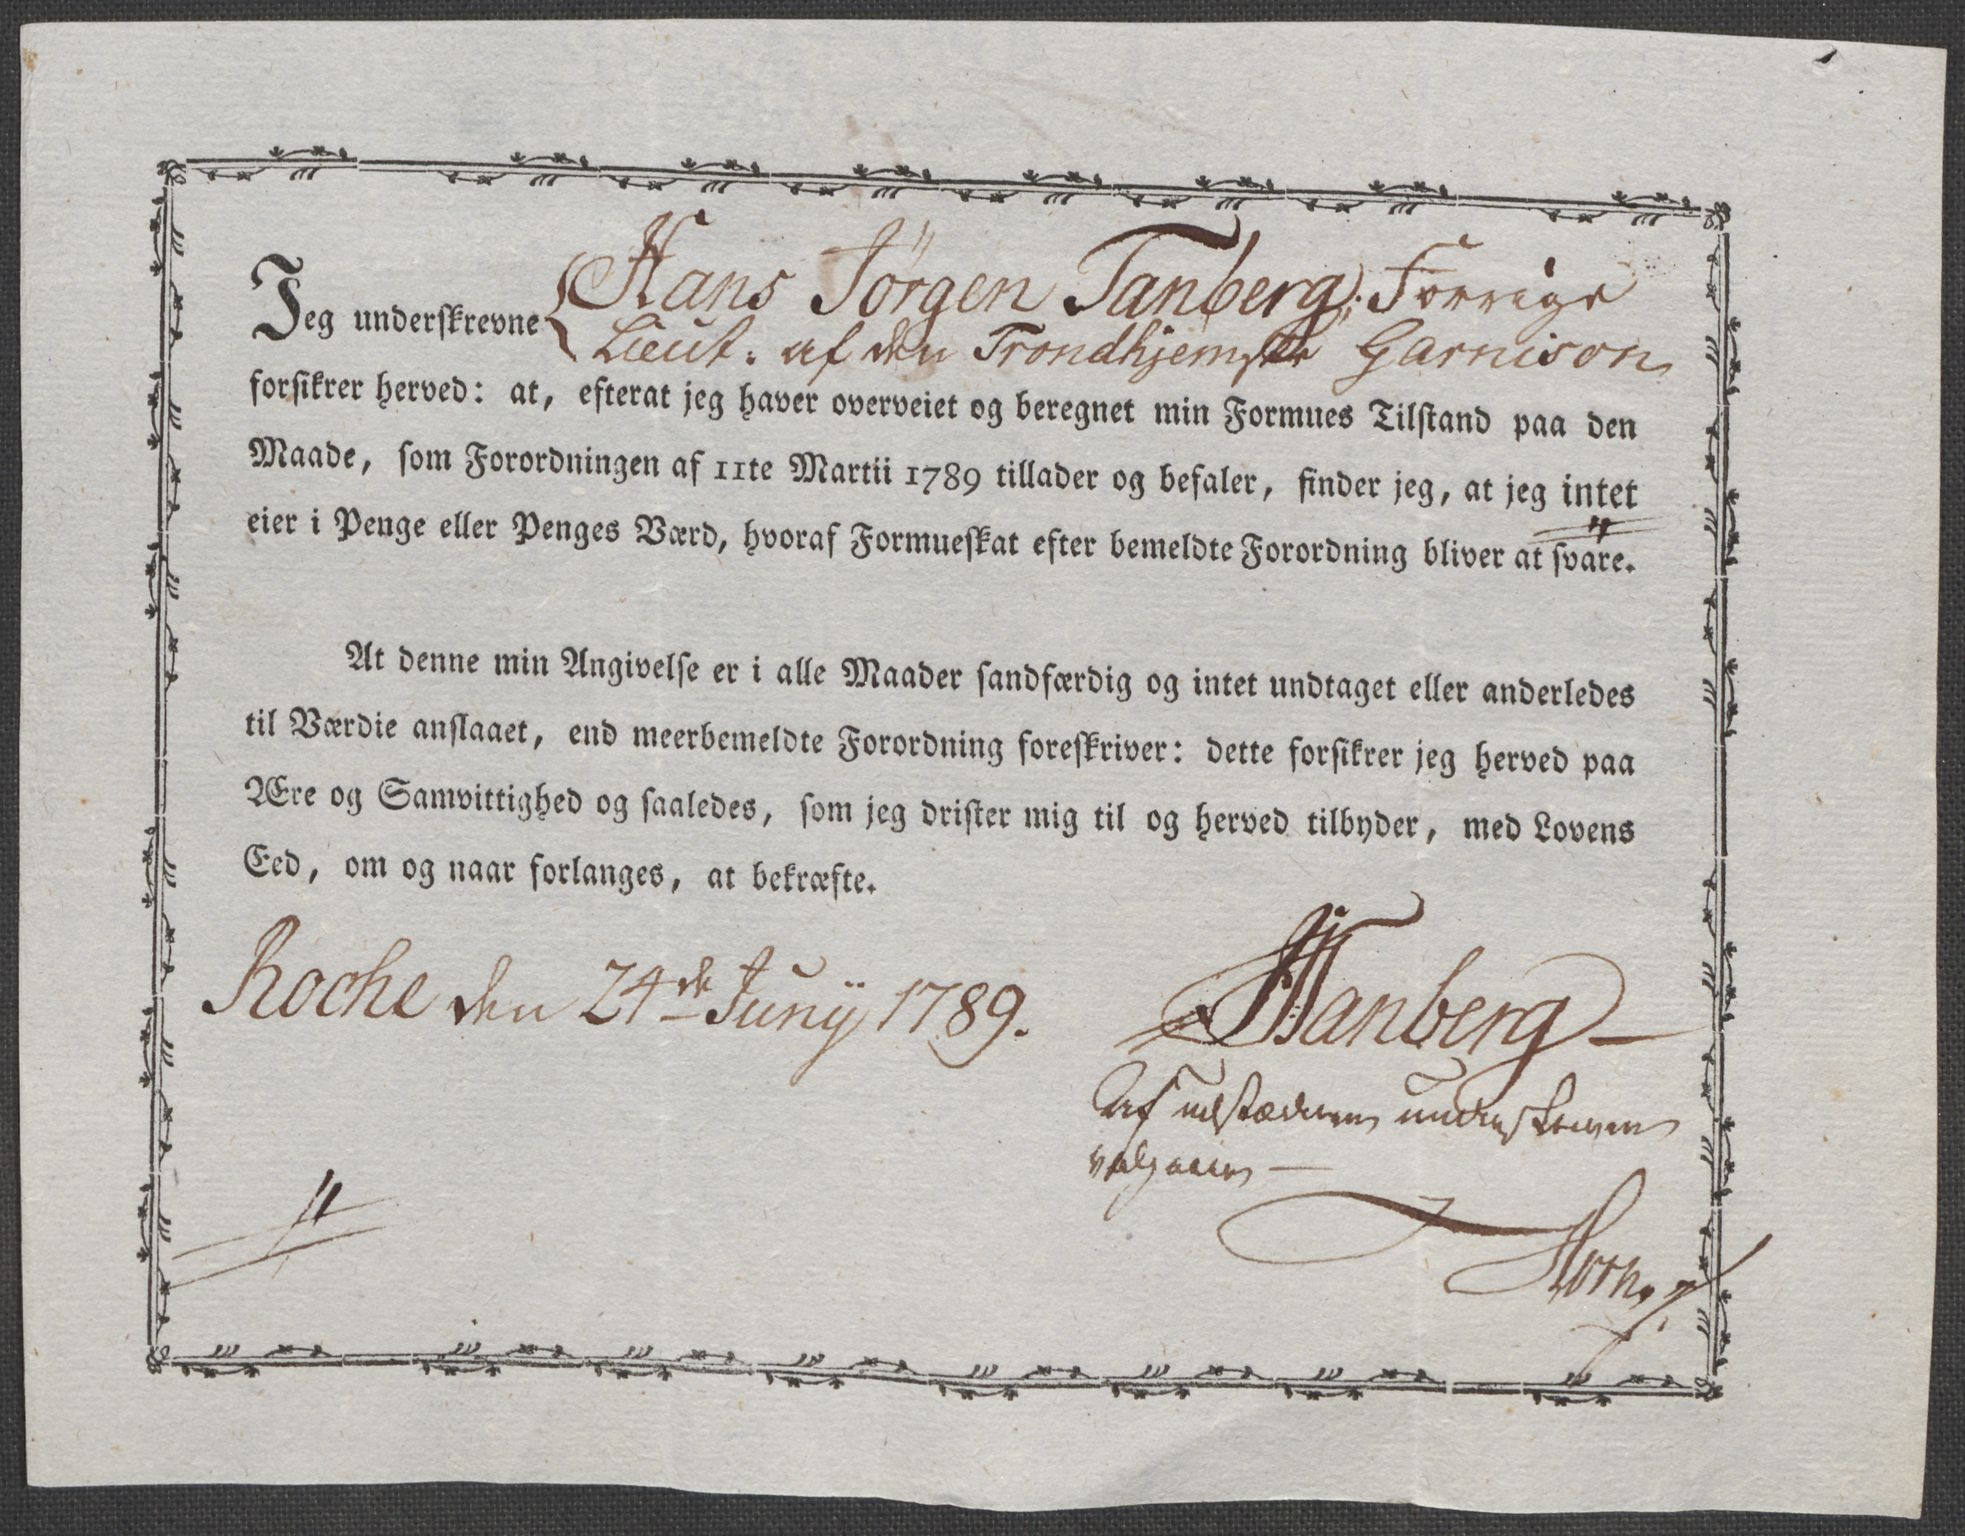 Jeg underskrevne Hans Jörgen Tanberg, Forrige
Lieut: af den Trondhjemske Garnison
forsikrer herved: at, efterat jeg haver overveiet og beregnet min Formues Tilstand paa den
Maade, som Forordningen af 11te Martii 1789 tillader og befaler, finder jeg, at jeg intet
eier i Penge eller Penges Værd, hvoraf Formueskat efter bemeldte Forordning bliver at svare.
At denne min Angivelse er i alle Maader sandfærdig og intet undtaget eller anderledes
til Værdie anslaaet, end meerbemeldte Forordning foreskriver: dette forsikrer jeg herved paa
Ære og Samvittighed og saaledes, som jeg drister mig til og herved tilbyder, med Lovens
Eed, om og naar forlanges, at bekræfte.
den 24de Junij 1789.
Tanberg
Af udstæderen underskreven